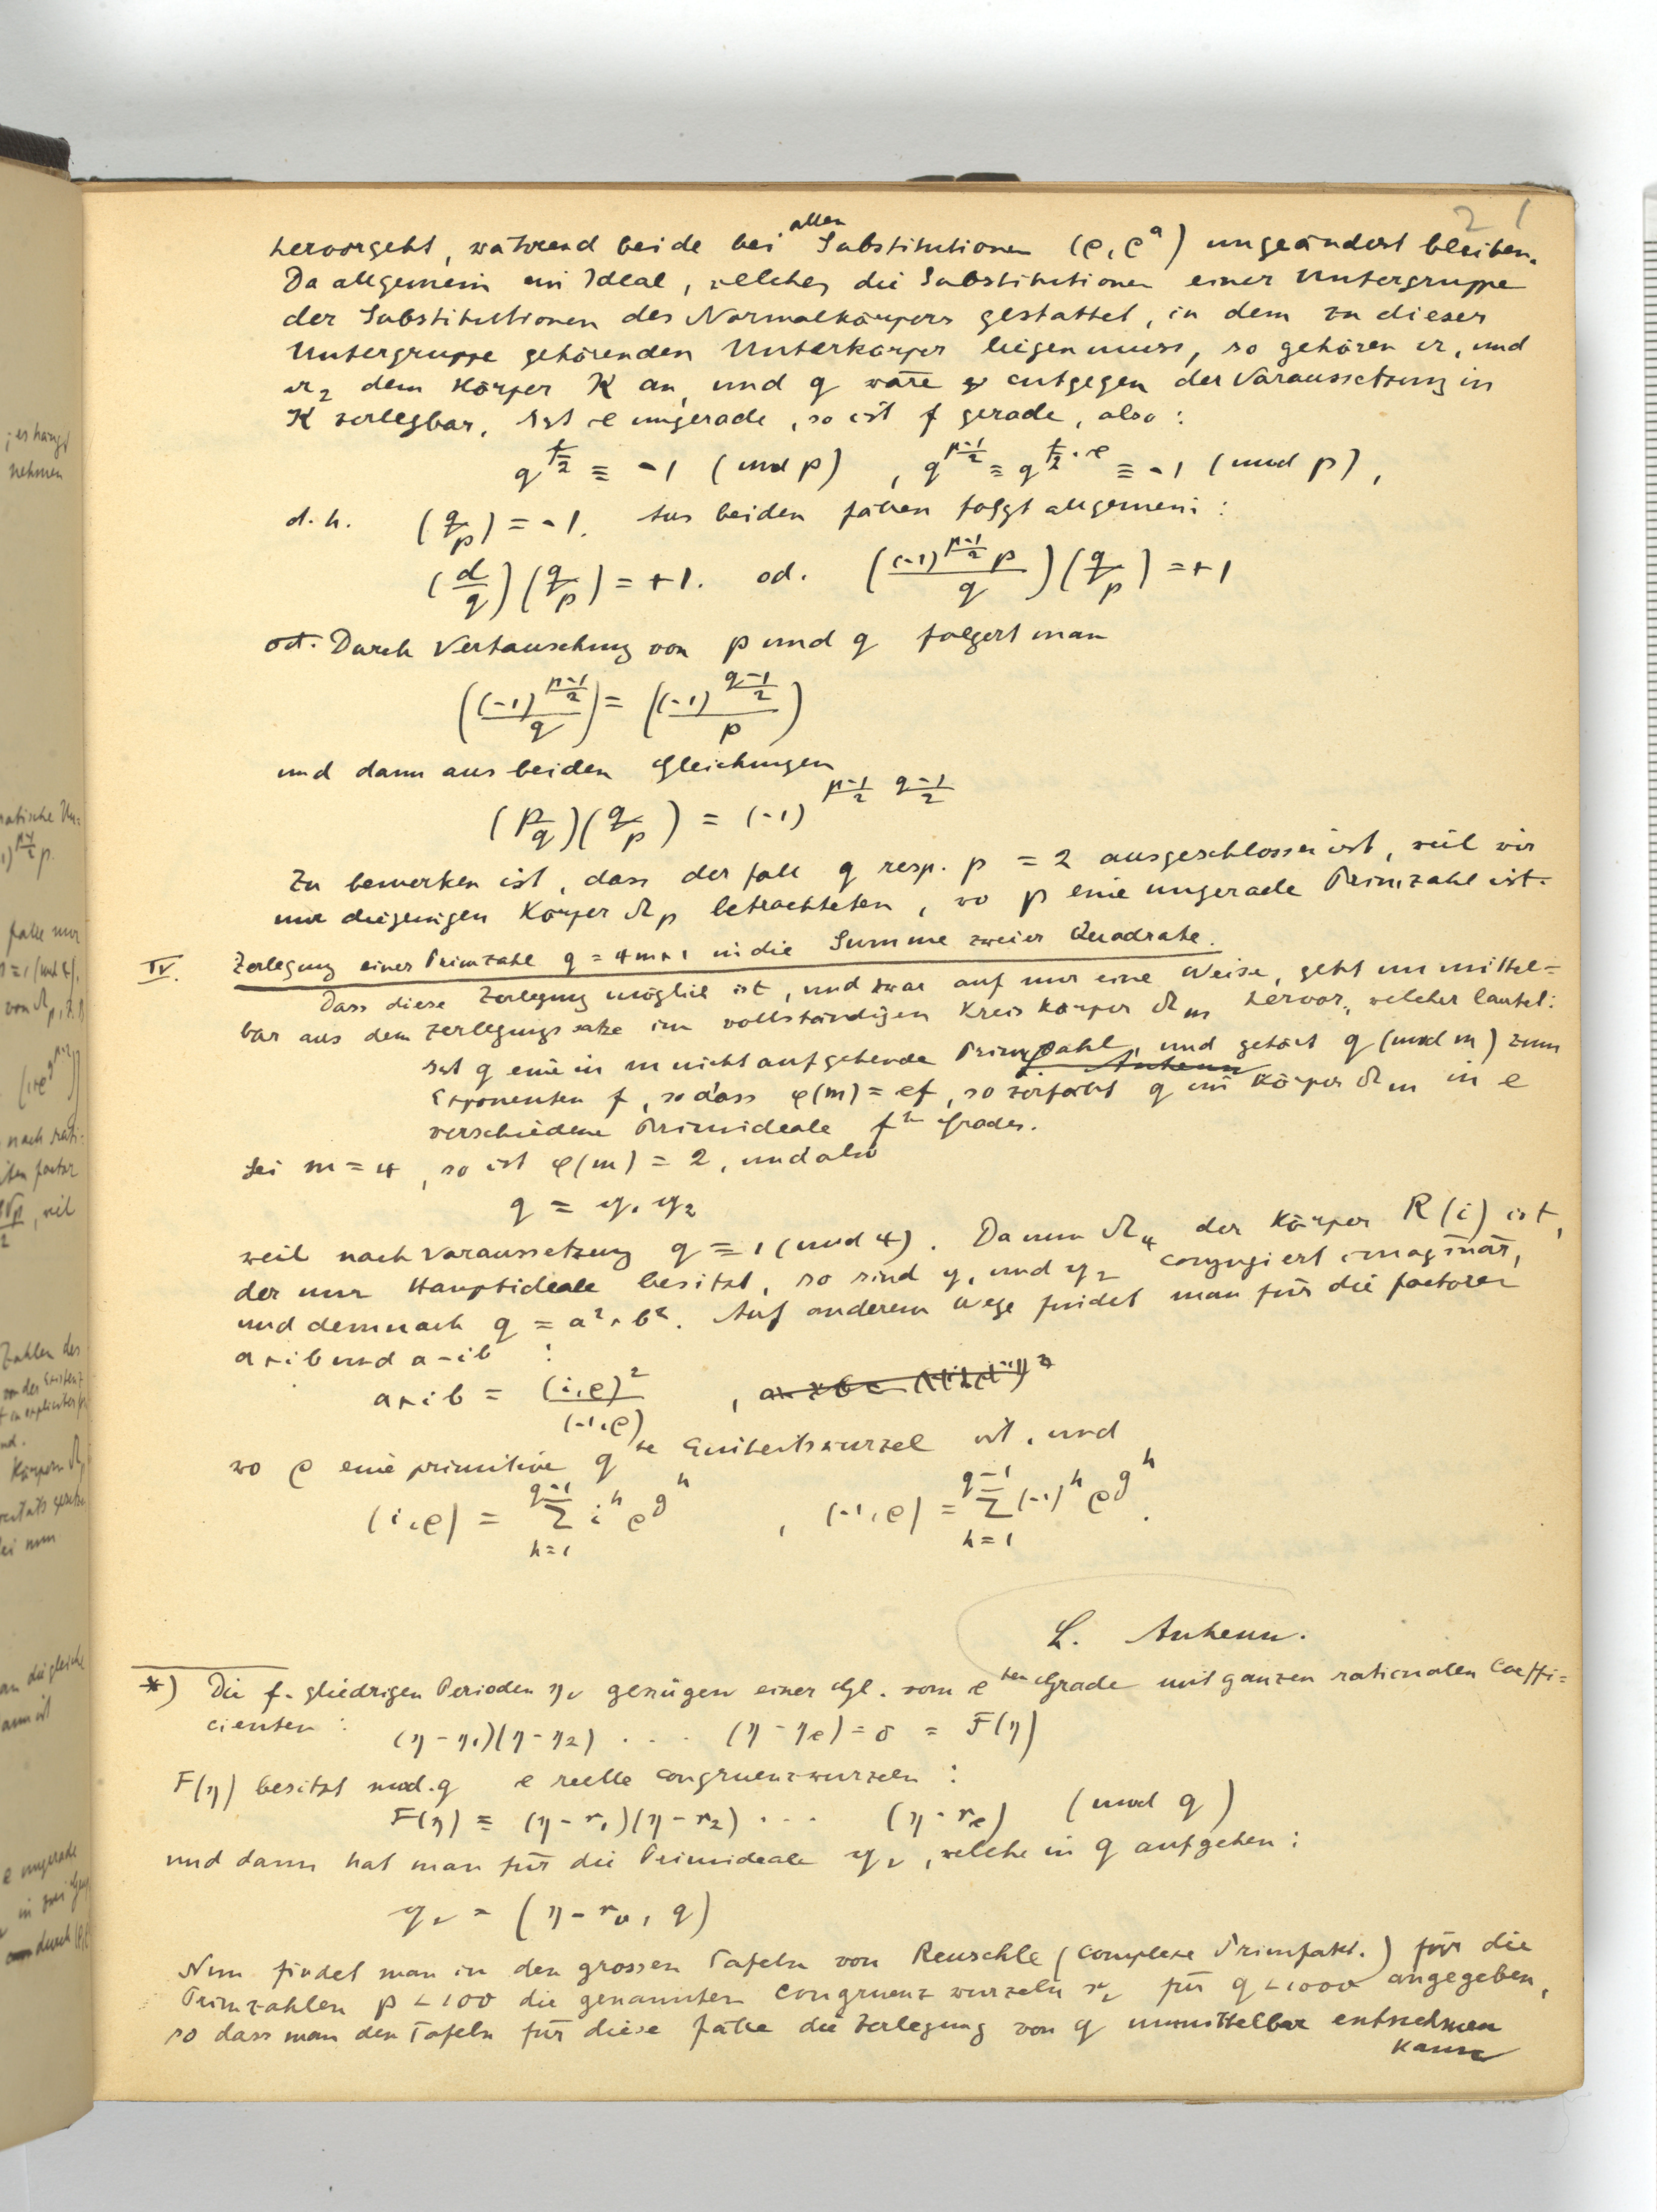 21
hervorgeht, während beide bei allen Substitutionen (ρ, ρᵃ) ungeändert bleiben.
Da allgemein ein Ideal, welches die Substitutionen einer Untergruppe
der Substitutionen des Normalkörpers gestattet, in dem zu dieser
Untergruppe gehörenden Unterkörper liegen muss, so gehören α₁ und
α₂ dem Körper K an, und q wäre entgegen der Voraussetzung in
K zerlegbar. Ist e ungerade, so ist f gerade, also:
q^{f/2} ≡ -1 (mod p) , q^{(p-1)/2} ≡ q^{f/2 · e} ≡ -1 (mod p),
d. h. (q/p) = -1. Aus beiden Fällen folgt allgemein:
(d/q)(q/p) = +1. od. ((-1)^{(p-1)/2} p / q)(q/p) = +1
od. Durch Vertauschung von p und q folgert man
((-1)^{(p-1)/2} / q) = ((-1)^{(q-1)/2} / p)
und dann aus beiden Gleichungen
(p/q)(q/p) = (-1)^{(p-1)/2 (q-1)/2}
Zu bemerken ist, dass der Fall q resp. p = 2 ausgeschlossen ist, weil wir
nur diejenigen Körper Ωp betrachteten, wo p eine ungerade Primzahl ist.
IV. Zerlegung einer Primzahl q = 4m+1 in die Summe zweier Quadrate.
Dass diese Zerlegung möglich ist, und zwar auf nur eine Weise, geht unmittel=
bar aus dem Zerlegungssatze im vollständigen Kreiskörper Ωm hervor, welcher lautet:
Ist q eine in m nicht aufgehende Primzahl, und gehört q (mod m) zum
Exponenten f, sodass φ(m) = ef, so zerfällt q im Körper Ωm in e
verschiedene Primideale fᵗⁿ Grades.
Sei m = 4, so ist φ(m) = 2, und also
q = 𝔶₁ 𝔶₂
weil nach Voraussetzung q ≡ 1 (mod 4). Da nun Ω₄ der Körper R(i) ist,
der nur Hauptideale besitzt, so sind 𝔶₁ und 𝔶₂ conjugiert imaginär,
und demnach q = a² + b². Auf anderem Wege findet man für die Factoren
a+ib und a-ib :
a+ib = (i,ρ)² / (-1,ρ) ,
wo ρ eine primitive qᵗᵉ Einheitswurzel ist, und
(i,ρ) = Σ_{h=1}^{q-1} i^h ρ^{g^h} , (-1,ρ) = Σ_{h=1}^{q-1} (-1)^h ρ^{g^h}.
L. Anhenn.
*) Die f-gliedrigen Perioden ην genügen einer Gl. vom eᵗᵉⁿ Grade mit ganzen rationalen Coeffi=
cienten : (η - η₁)(η - η₂) . . . (η - ηe) = 0 = F(η)
F(η) besitzt mod. q e reelle Congruenzwurzeln :
F(η) ≡ (η - r₁)(η - r₂) . . . (η - re) (mod q)
und dann hat man für die Primideale 𝔶ν, welche in q aufgehen :
𝔶ν = (η - rν, q)
Nun findet man in den grossen Tafeln von Reuschle (Complexe Primfakt.) für die
Primzahlen p < 100 die genannten Congruenzwurzeln rν für q < 1000 angegeben,
so dass man den Tafeln für diese Fälle die Zerlegung von q unmittelbar entnehmen
kann